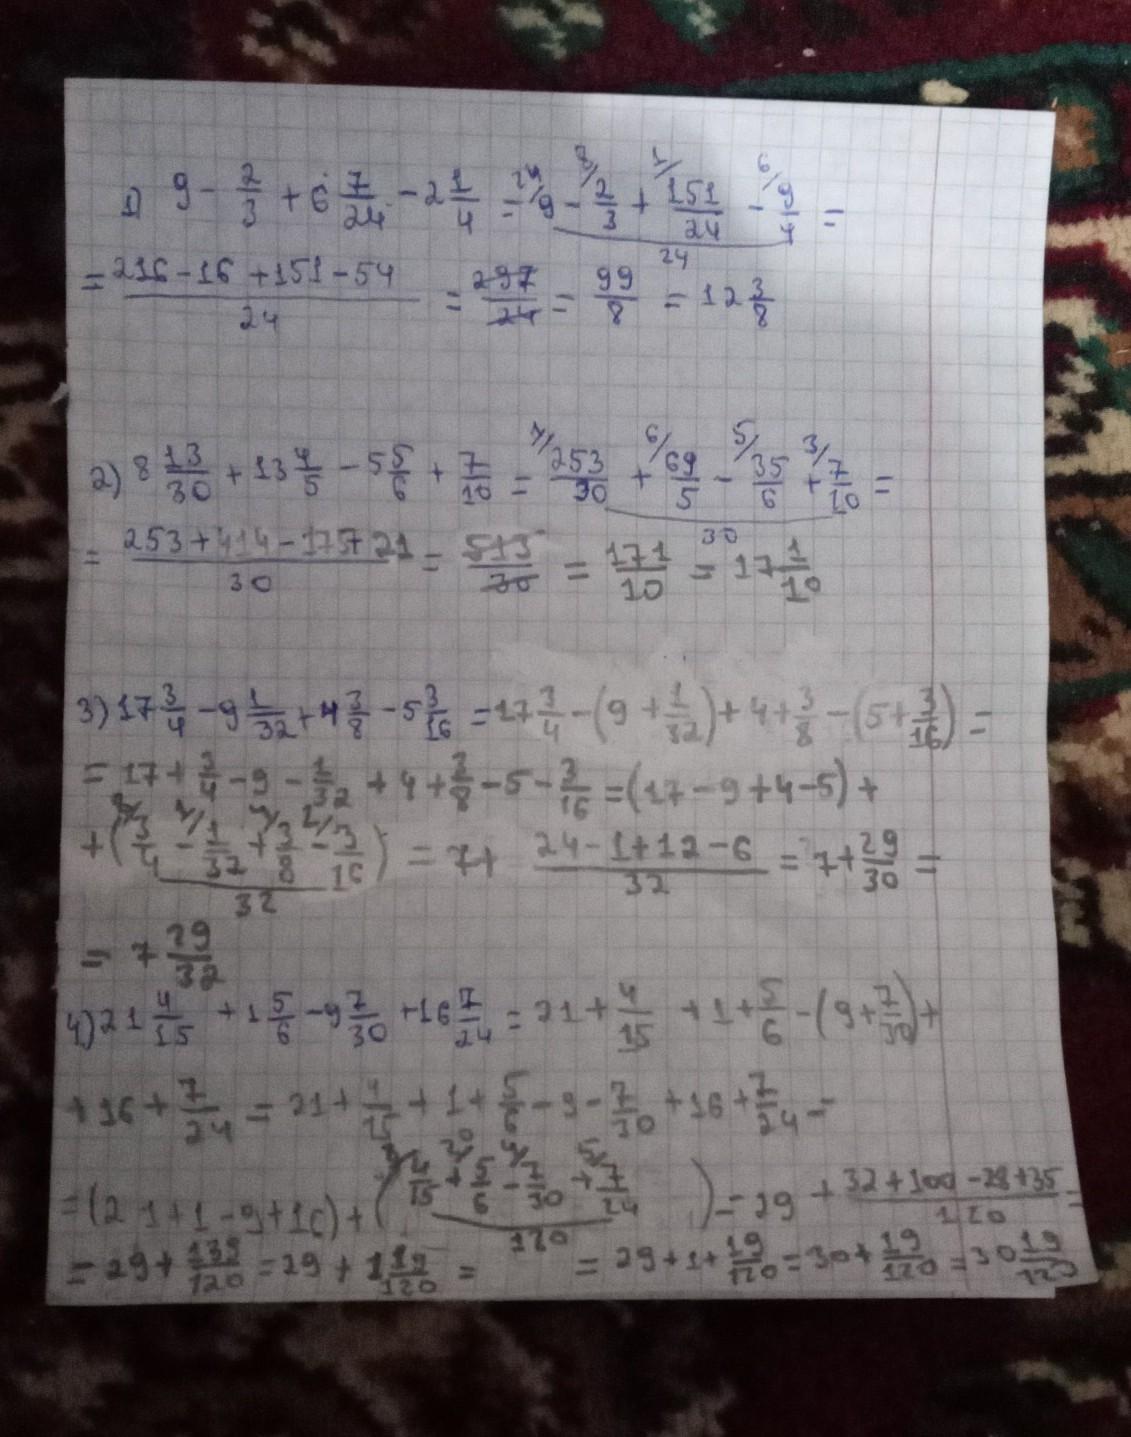 1) 9 - 2/3 + 6 7/24 - 2 1/4 = 24/ 9 - 8/ 2/3 + 1/ 151/24 - 6/ 9/4 =
24
= (216 - 16 + 151 - 54)/24 = 297/24 = 99/8 = 12 3/8
2) 8 13/30 + 13 4/5 - 5 5/6 + 7/10 = 1/ 253/30 + 6/ 69/5 - 5/ 35/6 + 3/ 7/10 =
30
= (253 + 414 - 175 + 21)/30 = 513/30 = 171/10 = 17 1/10
3) 17 3/4 - 9 1/32 + 4 3/8 - 5 3/16 = 17 3/4 - (9 + 1/32) + 4 + 3/8 - (5 + 3/16) =
= 17 + 3/4 - 9 - 1/32 + 4 + 3/8 - 5 - 3/16 = (17 - 9 + 4 - 5) +
+ (8/ 3/4 - 1/ 1/32 + 4/ 3/8 - 2/ 3/16) = 7 + (24 - 1 + 12 - 6)/32 = 7 + 29/30 =
32
= 7 29/32
4) 21 4/15 + 1 5/6 - 9 7/30 + 16 7/24 = 21 + 4/15 + 1 + 5/6 - (9 + 7/30) +
+ 16 + 7/24 = 21 + 4/15 + 1 + 5/6 - 9 - 7/30 + 16 + 7/24 =
= (21 + 1 - 9 + 16) + (8/ 4/15 + 20/ 5/6 - 4/ 7/30 + 5/ 7/24) = 29 + (32 + 100 - 28 + 35)/120 =
120
= 29 + 139/120 = 29 + 1 19/120 = = 29 + 1 + 19/120 = 30 + 19/120 = 30 19/120